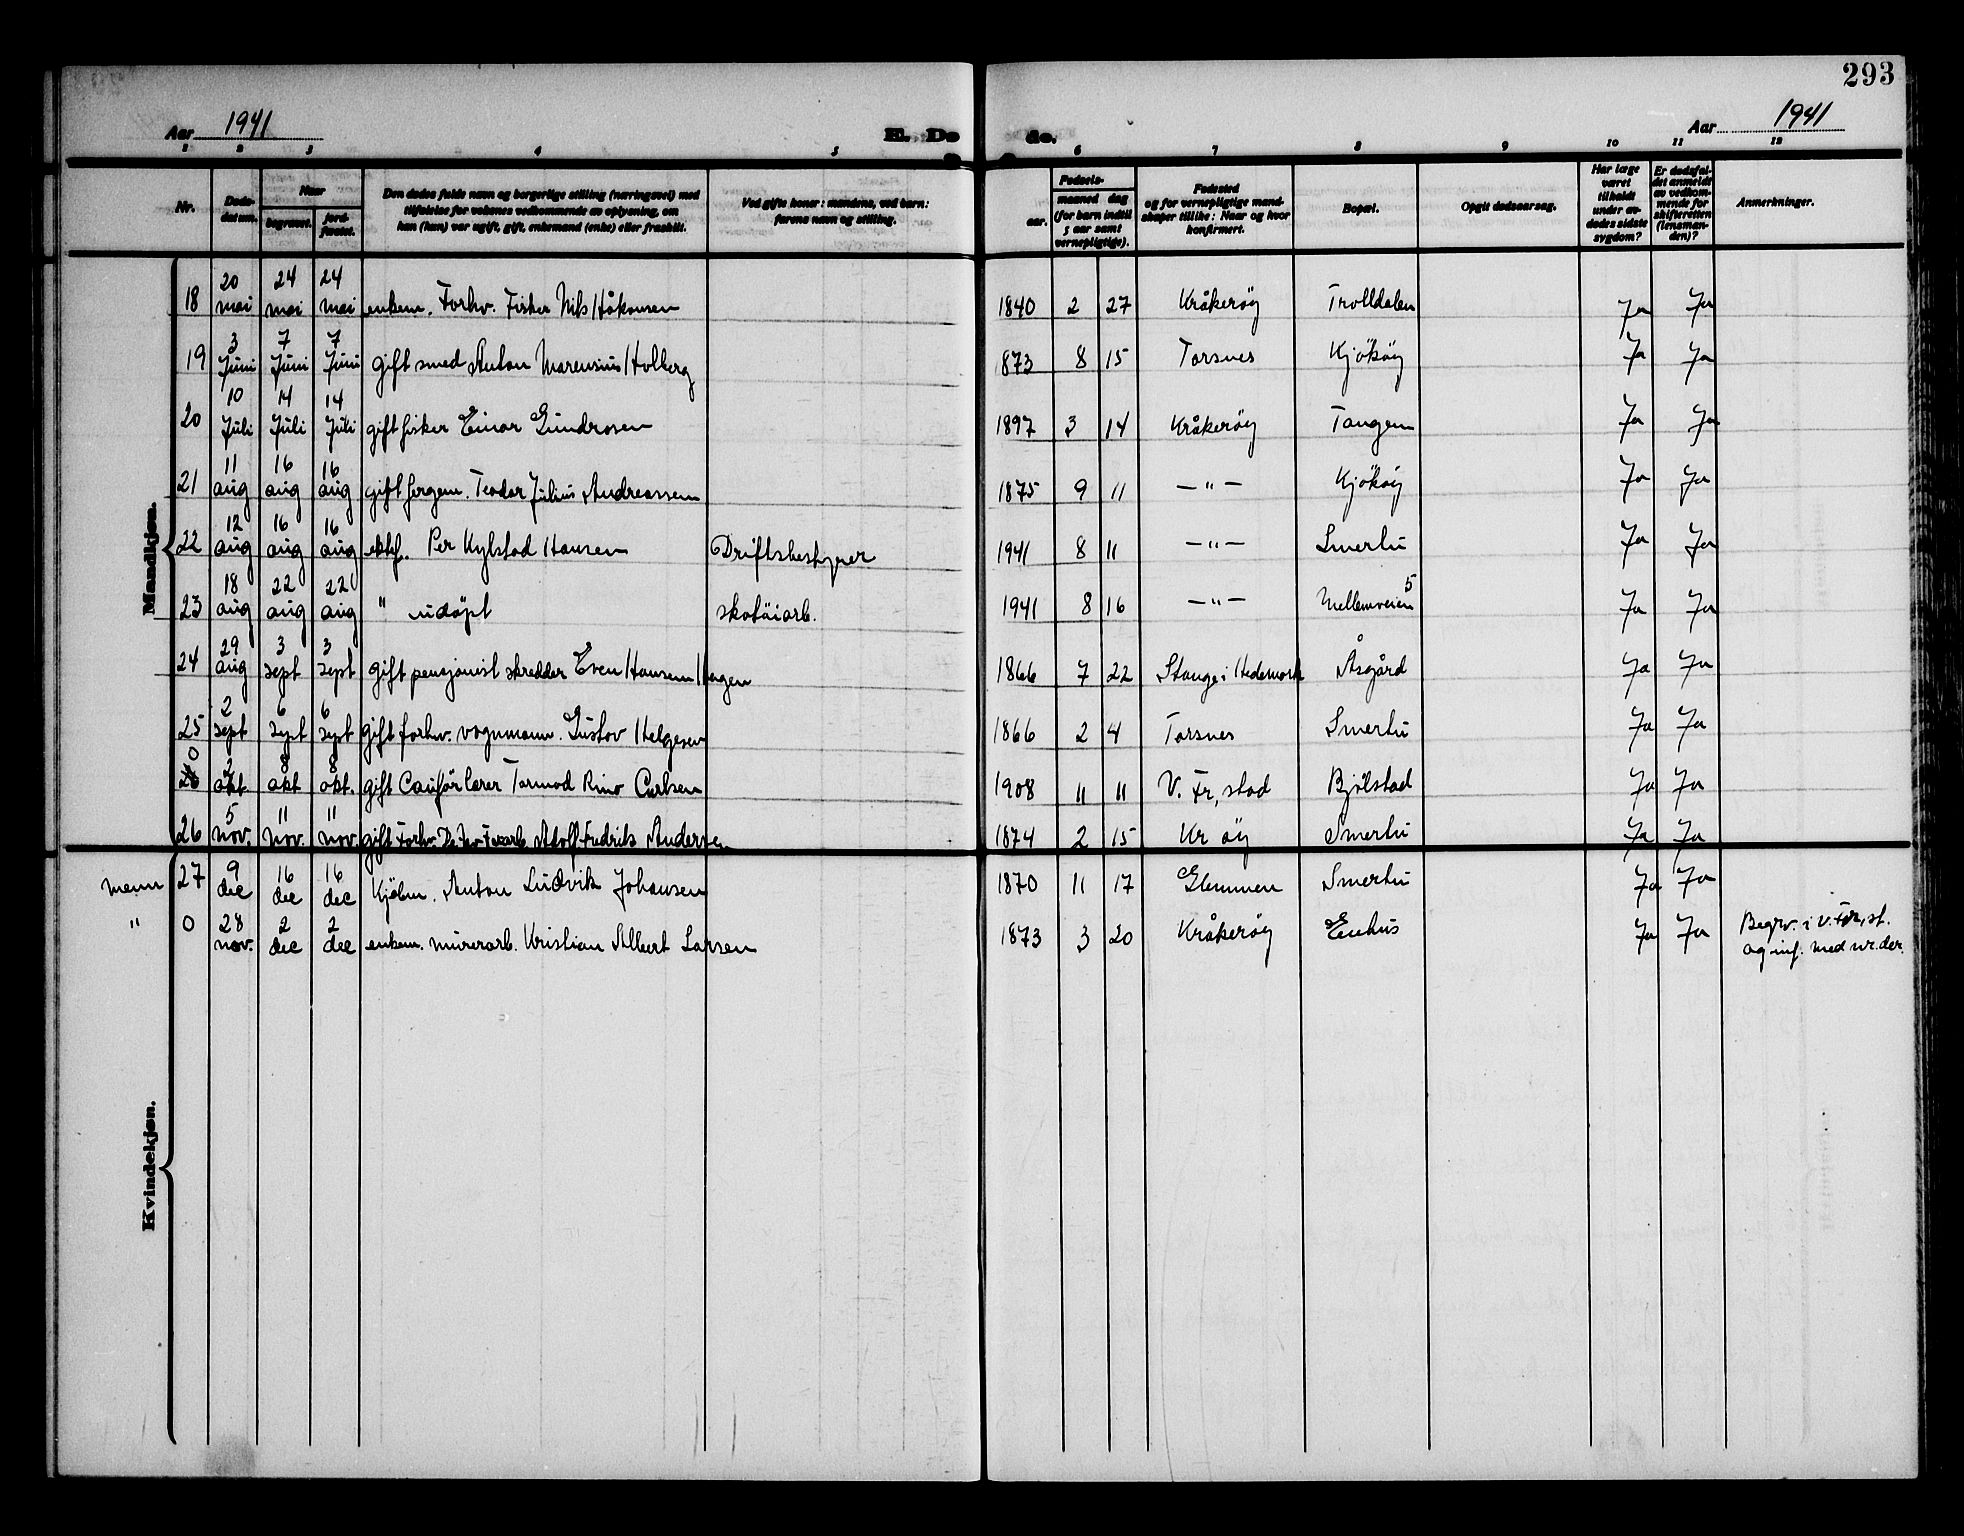 293
Aar 1941
E. Dø
de.
Aar 1941
1 2 3 4 5 6 7 8 9 10 11 12
Nr.
Døds-
datum.
Naar
begravet.
jord-
fæstet.
Den dødes fulde navn og borgerlige stilling (næringsvei) med
tilføielse for voksnes vedkommende av oplysning, om
han (hun) var ugift, gift, enkemand (enke) eller fraskilt.
Ved gifte koner: mandens, ved barn:
farens navn og stilling.
Fødsels-
aar.
maaned dag
(for barn indtil
5 aar samt
vernepligtige).
Fødested
og for vernepligtige mand-
skaper tillike: Naar og hvor
konfirmert.
Bopæl.
Opgit dødsaarsag.
Har læge
været
tilkaldt
under av-
dødes sidste
sygdom?
Er dødsfal-
det anmeldt
av vedkom-
mende for
skifteretten
(lensman-
den)?
Anmerkninger.
Mandkjøn.
18 20 mai 24 mai 24 mai enkem. Forhv. Fisker Nils Håkonsen 1840 2 27 Kråkerøy Trolldalen Ja Ja
19 3 Juni 7 Juni 7 Juni gift smed Anton Marensius Holberg 1873 8 15 Torsnes Kjökøy Ja Ja
20 10 Juli 14 Juli 14 Juli gift fisker Einar Gundrosen 1897 3 14 Kråkerøy Tangen Ja Ja
21 11 aug 16 aug 16 aug gift Teodor Julius Andreassen 1875 9 11 — " — Kjökøy Ja Ja
22 12 aug 16 aug 16 aug ektef. Per Kylstad Hansen Driftsbestyrer 1941 8 11 — " — Smertu Ja Ja
23 18 aug 22 aug 22 aug " udøpt skotöiarb. 1941 8 16 — " — Mellemveien 5 Ja Ja
24 29 aug 3 sept 3 sept gift pensjonist skredder Even Hansen Hagen 1866 7 22 Stange i Hedemark Åsgård Ja Ja
25 2 sept 6 sept 6 sept gift forhv. vognmann. Gustav Helgesen 1866 2 4 Torsnes Smertu Ja Ja
0 2 okt 8 okt 8 okt. gift Tormod Rino Carlsen 1908 11 11 V. Fr,stad Bjölstad Ja Ja
26 5 nov. 11 nov. 11 nov. gift Forhv. Adolf Fredrik Andersen 1874 2 15 Kr øy Smertu Ja Ja
menn 27 9 dec 16 dec 16 dec Kjöbm. Anton Ludvik Johansen 1870 11 17 Glemmen Smertu Ja Ja
" 0 28 nov. 2 dec 2 dec enkem. murerarb. Kristian Albert Larsen 1873 3 20 Kråkerøy Enhus Ja Ja Begrv. i V. Fr,st.
og inf. med nr. der.
Kvindekjøn.